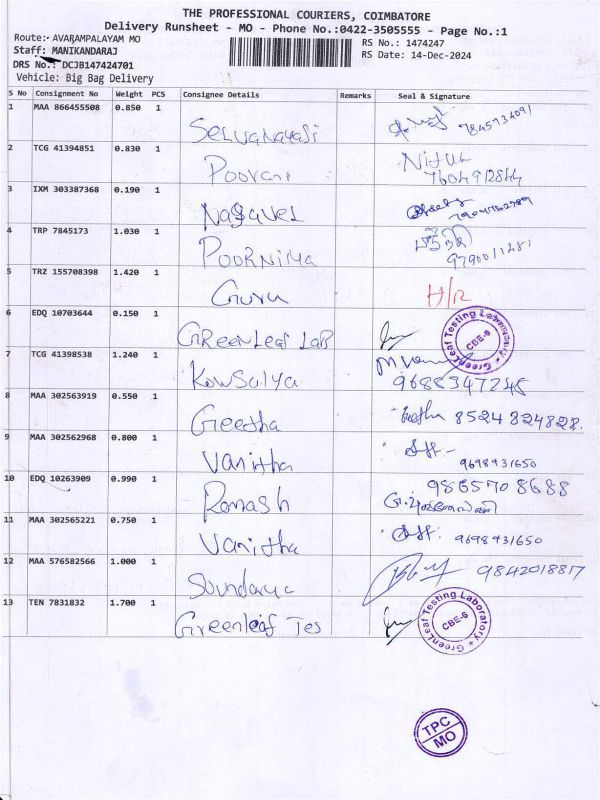 THE PROFESSIONAL COURIERS, COIMBATORE
Delivery Runsheet - MO - Phone No.:0422-3505555 - Page No.:1
Route:- AVARAMPALAYAM MO
RS No.: 1474247
Staff: MANIKANDARAJ
RS Date: 14-Dec-2024
DRS No.: DCJB147424701
Vehicle: Big Bag Delivery
S No Consignment No Weight PCS Consignee Details Remarks Seal & Signature
1 MAA 866455508 0.850 1
7845734091
2 TCG 41394851 0.830 1 Poovani Nithu
7604912844
3 IXM 303387368 0.190 1 Nagavel
4 TRP 7845173 1.030 1 POORNIMA
9790011281
5 TRZ 155708398 1.420 1 Guru H/R
6 EDQ 10703644 0.150 1 GReenLeaf LaB
GreenLeaf Testing Laboratory
CBE-6
7 TCG 41398538 1.240 1 Kowsalya
9688347245
8 MAA 302563919 0.550 1 Geetha Geetha 8524824828.
9 MAA 302562968 0.800 1 Vanitha
9698931650
10 EDQ 10263909 0.990 1 Ramash 9865708688
11 MAA 302565221 0.750 1 Vanitha 9698931650
12 MAA 576582566 1.000 1 Soundarya 9842018817
13 TEN 7831832 1.700 1 Greenleaf Tes
GreenLeaf Testing Laboratory
CBE-6
TPC
MO